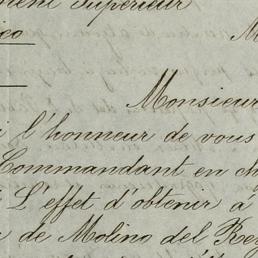 Supérieur
Monsieur
l'honneur de vous
Commandant en
L'effet d'obtenir à
de Molino del Rey